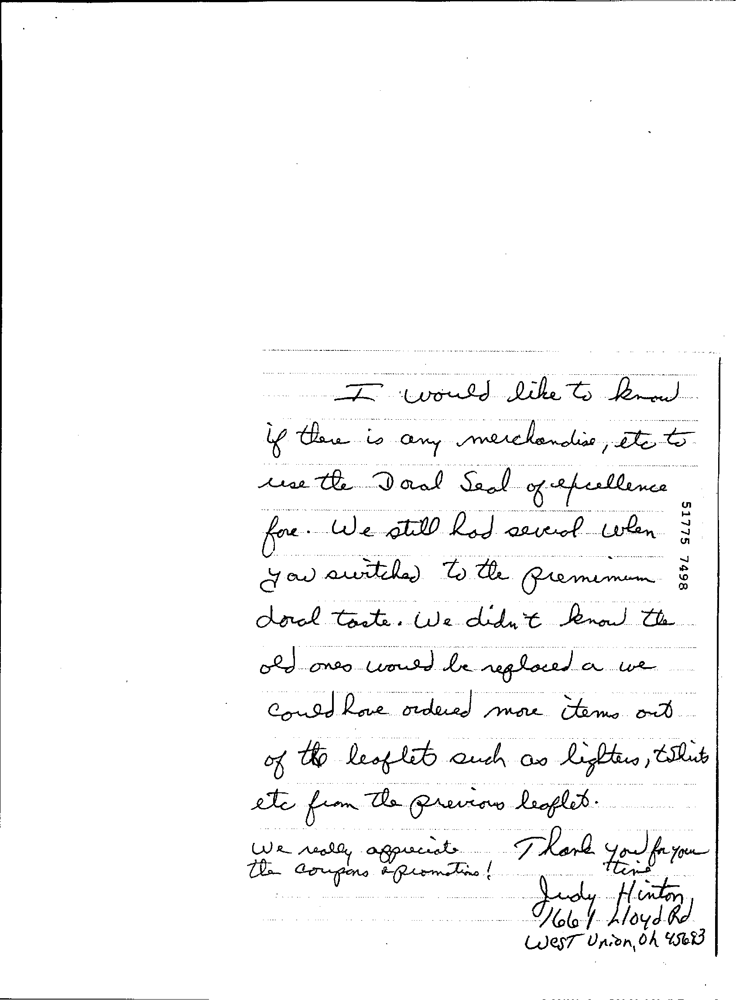 I would like to know
if there is any merchandise, etc to
use the Doral Seal of excellence
for. We still had several when
you switched to the premimum
doral taste. We didn't know the
old ones would be replaced a we
could have ordered more items out
of the leaflets such as lighters, tshirts
etc from the previous leaflet.
We really appreciate
the coupons & promotions!
Thank you for your
time
Judy Hinton
1661 Lloyd Rd
West Union, Oh 45693
51775 7498